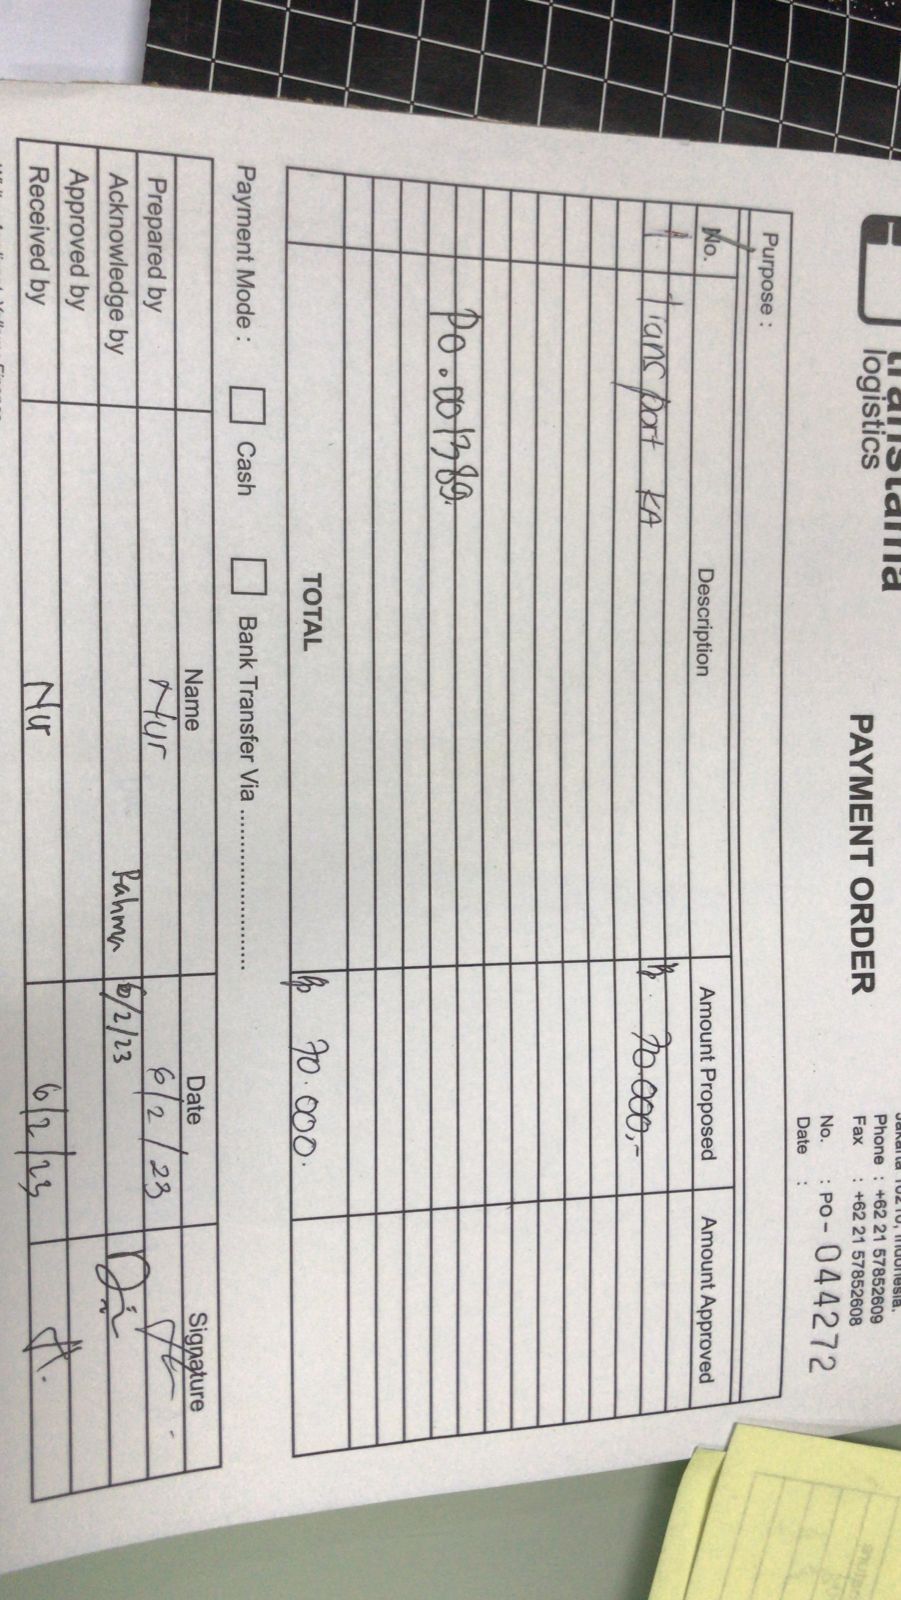 logistics
PAYMENT ORDER
Phone : +62 21 57852609
Fax : +62 21 57852608
No. : PO - 044272
Date :
Purpose :
No. Description Amount Proposed Amount Approved
1. Transport KA Rp. 70.000,-
PO.001389.
TOTAL Rp 70.000.
Payment Mode : Cash Bank Transfer Via ........................
Name Date Signature
Prepared by Nur 6/2/23
Acknowledge by Rahma 6/2/23
Approved by
Received by Nur 6/2/23